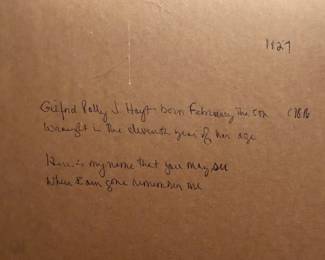 1827
Gilford Polly J. Hoyt born February the 5th 1816
Wrought in the eleventh year of her age
Here is my name that you may see
When I am gone remember me